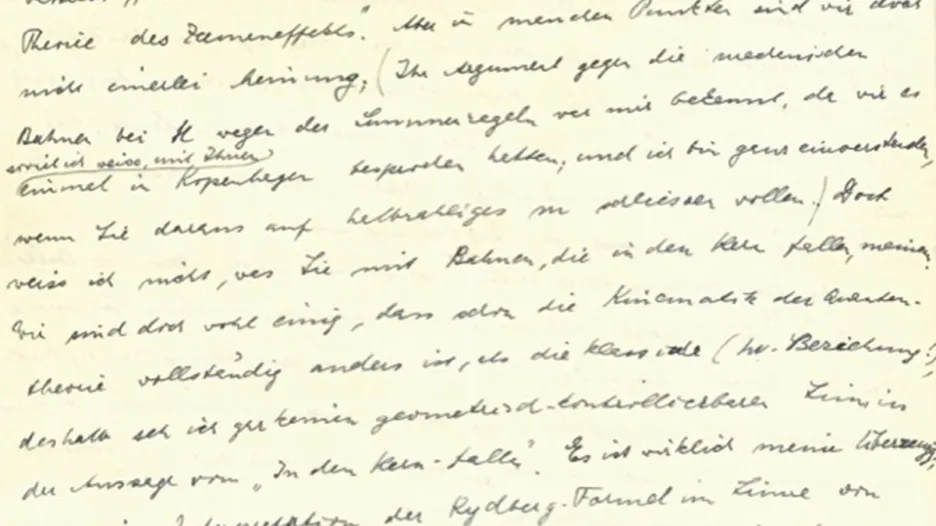 Theorie des Zeemaneffekts". Aber in manchen Punkten sind wir doch
nicht einerlei Meinung; (Ihr Argument gegen die mechanischen
Bahnen bei H wegen der Summenregeln war mir bekannt, da wir es
soviel ich weiss, mit Ihnen
einmal in Kopenhagen besprochen hatten; und ich bin ganz einverstanden,
wenn Sie daraus auf halbzahliges m schliessen wollen.) Doch
weiss ich nicht, was Sie mit Bahnen, die in den Kern fallen, meinen.
Wir sind doch wohl einig, dass schon die Kinematik der Quanten-
theorie vollständig anders ist, als die klassische (hν-Beziehung!),
deshalb seh ich gar keinen geometrisch-kontrollierbaren Sinn in
der Aussage vom „In den Kern-fallen". Es ist wirklich meine Überzeugung,
der Rydberg-Formel im Sinne von